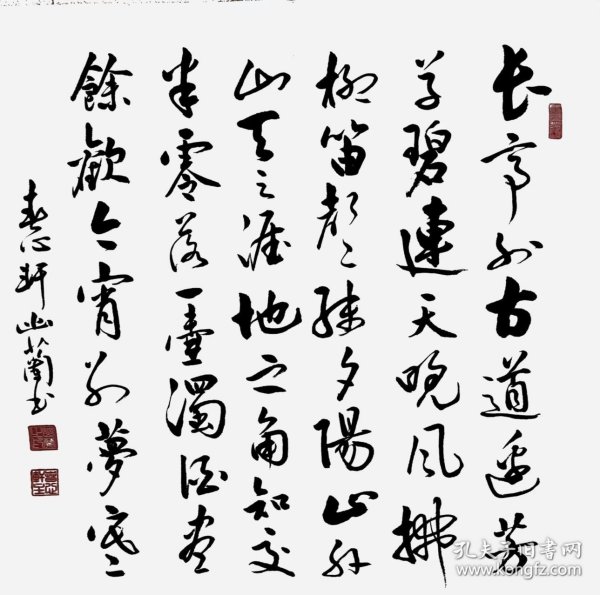 长亭外古道边芳
草碧連天晚风拂
柳笛聲残夕陽山外
山天之涯地之角知交
半零落一壺濁酒盡
餘歡今宵别夢寒
軒幽蘭书
孔夫子旧书网
www.kongfz.com